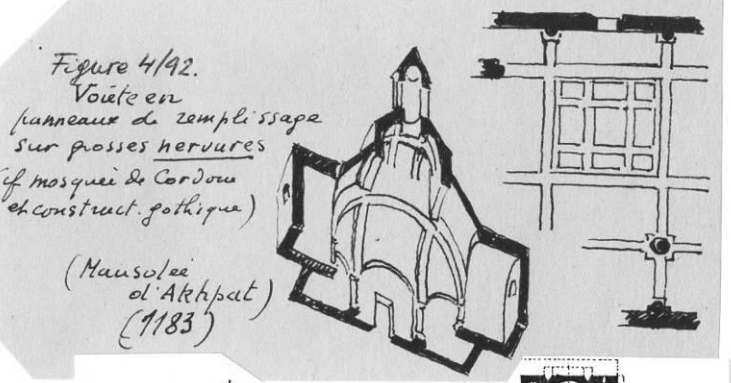 Figure 4/92.
Voûte en
panneaux de remplissage
sur grosses nervures
(cf mosquée de Cordoue
et construct. gothique)
(Mausolée
d'Akhpat)
(1183)